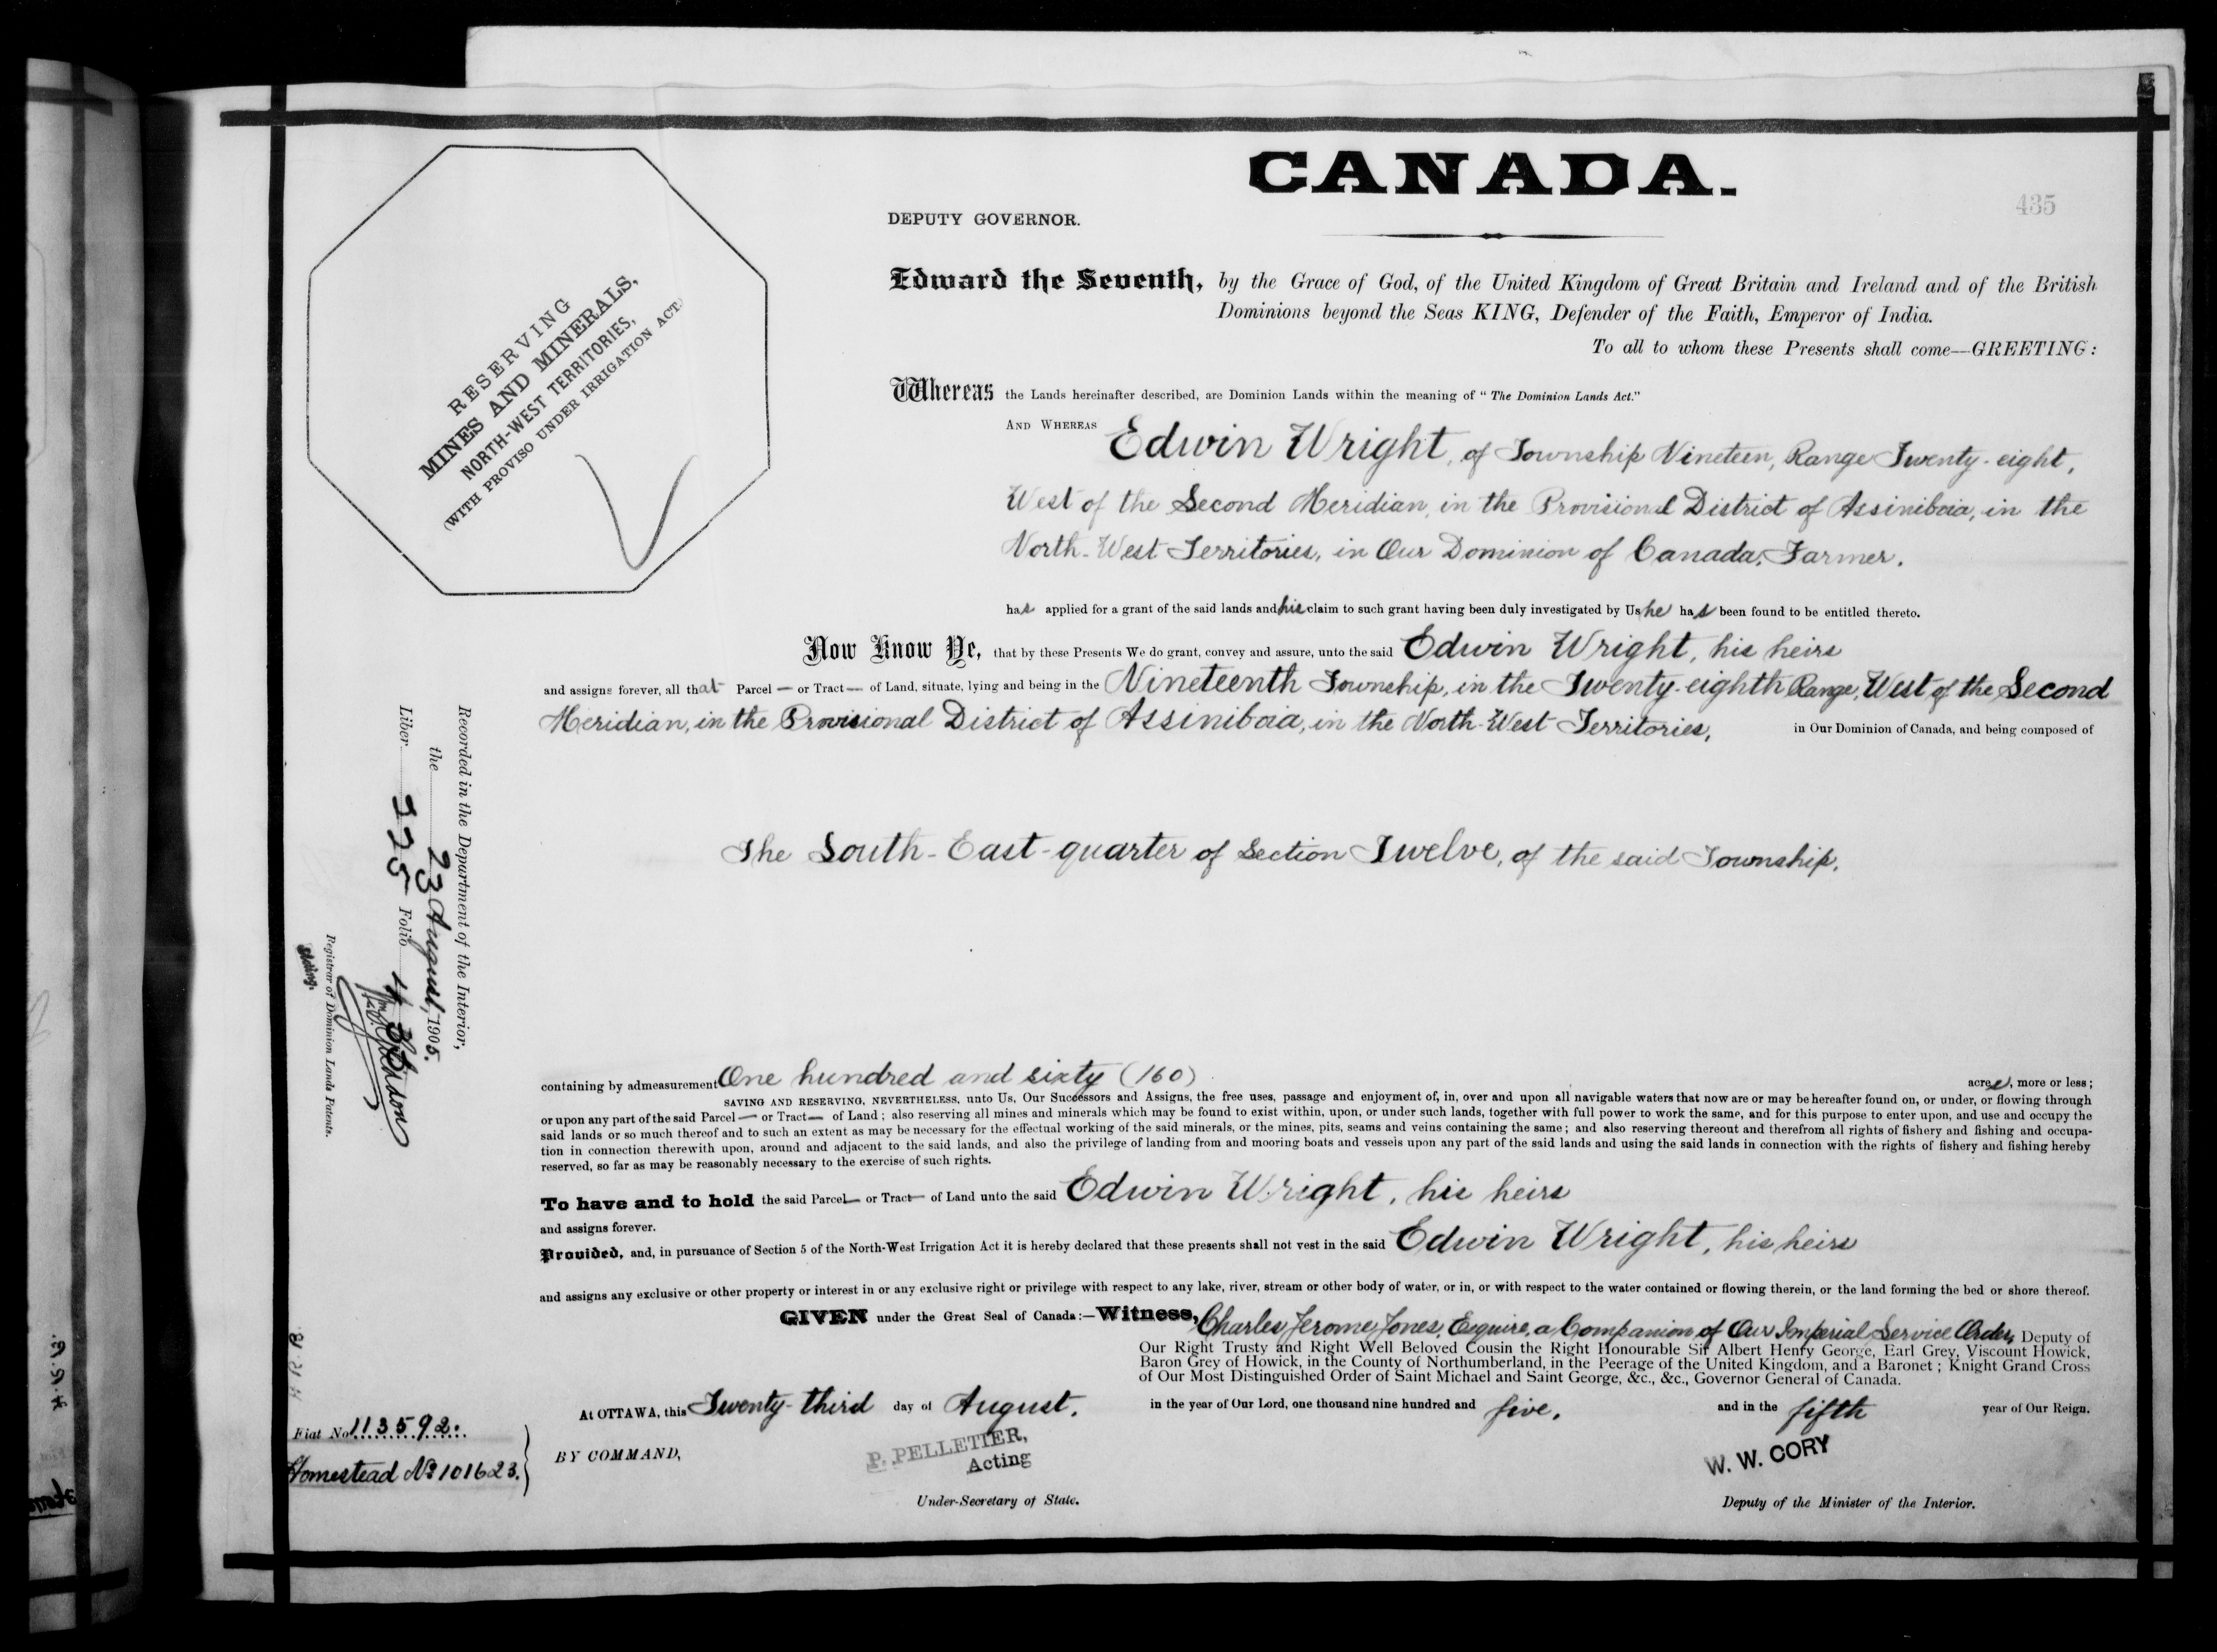 CANADA.
435
DEPUTY GOVERNOR.
RESERVING
MINES AND MINERALS,
NORTH-WEST TERRITORIES,
(WITH PROVISO UNDER IRRIGATION ACT.)
Edward the Seventh, by the Grace of God, of the United Kingdom of Great Britain and Ireland and of the British
Dominions beyond the Seas KING, Defender of the Faith, Emperor of India.
To all to whom these Presents shall come—GREETING:
Whereas the Lands hereinafter described, are Dominion Lands within the meaning of "The Dominion Lands Act."
AND WHEREAS Edwin Wright, of Township Nineteen, Range Twenty-eight,
West of the Second Meridian, in the Provisional District of Assiniboia, in the
North-West Territories, in Our Dominion of Canada, Farmer.
has applied for a grant of the said lands and his claim to such grant having been duly investigated by Us he has been found to be entitled thereto.
Now Know Ye, that by these Presents We do grant, convey and assure, unto the said Edwin Wright, his heirs
and assigns forever, all that Parcel — or Tract — of Land, situate, lying and being in the Nineteenth Township, in the Twenty-eighth Range, West of the Second
Meridian, in the Provisional District of Assiniboia, in the North-West Territories, in Our Dominion of Canada, and being composed of
The South-East-quarter of Section Twelve, of the said Township.
Recorded in the Department of the Interior,
the 23 August, 1905.
Liber 225 Folio 435
Registrar of Dominion Lands Patents.
Acting.
containing by admeasurement One hundred and sixty (160) acres, more or less;
SAVING AND RESERVING, NEVERTHELESS, unto Us, Our Successors and Assigns, the free uses, passage and enjoyment of, in, over and upon all navigable waters that now are or may be hereafter found on, or under, or flowing through
or upon any part of the said Parcel — or Tract — of Land; also reserving all mines and minerals which may be found to exist within, upon, or under such lands, together with full power to work the same, and for this purpose to enter upon, and use and occupy the
said lands or so much thereof and to such an extent as may be necessary for the effectual working of the said minerals, or the mines, pits, seams and veins containing the same; and also reserving thereout and therefrom all rights of fishery and fishing and occupa-
tion in connection therewith upon, around and adjacent to the said lands, and also the privilege of landing from and mooring boats and vessels upon any part of the said lands and using the said lands in connection with the rights of fishery and fishing hereby
reserved, so far as may be reasonably necessary to the exercise of such rights.
To have and to hold the said Parcel — or Tract — of Land unto the said Edwin Wright, his heirs
and assigns forever.
Provided, and, in pursuance of Section 5 of the North-West Irrigation Act it is hereby declared that these presents shall not vest in the said Edwin Wright, his heirs
and assigns any exclusive or other property or interest in or any exclusive right or privilege with respect to any lake, river, stream or other body of water, or in, or with respect to the water contained or flowing therein, or the land forming the bed or shore thereof.
GIVEN under the Great Seal of Canada:—Witness, Charles Jerome Jones, Esquire, a Companion of Our Imperial Service Order, Deputy of
Our Right Trusty and Right Well Beloved Cousin the Right Honourable Sir Albert Henry George, Earl Grey, Viscount Howick,
Baron Grey of Howick, in the County of Northumberland, in the Peerage of the United Kingdom, and a Baronet; Knight Grand Cross
of Our Most Distinguished Order of Saint Michael and Saint George, &c., &c., Governor General of Canada.
At OTTAWA, this Twenty-third day of August, in the year of Our Lord, one thousand nine hundred and five, and in the fifth year of Our Reign.
Fiat No. 113592.
Homestead No 101623.
BY COMMAND,
P. PELLETIER,
Acting
Under-Secretary of State.
W. W. CORY
Deputy of the Minister of the Interior.